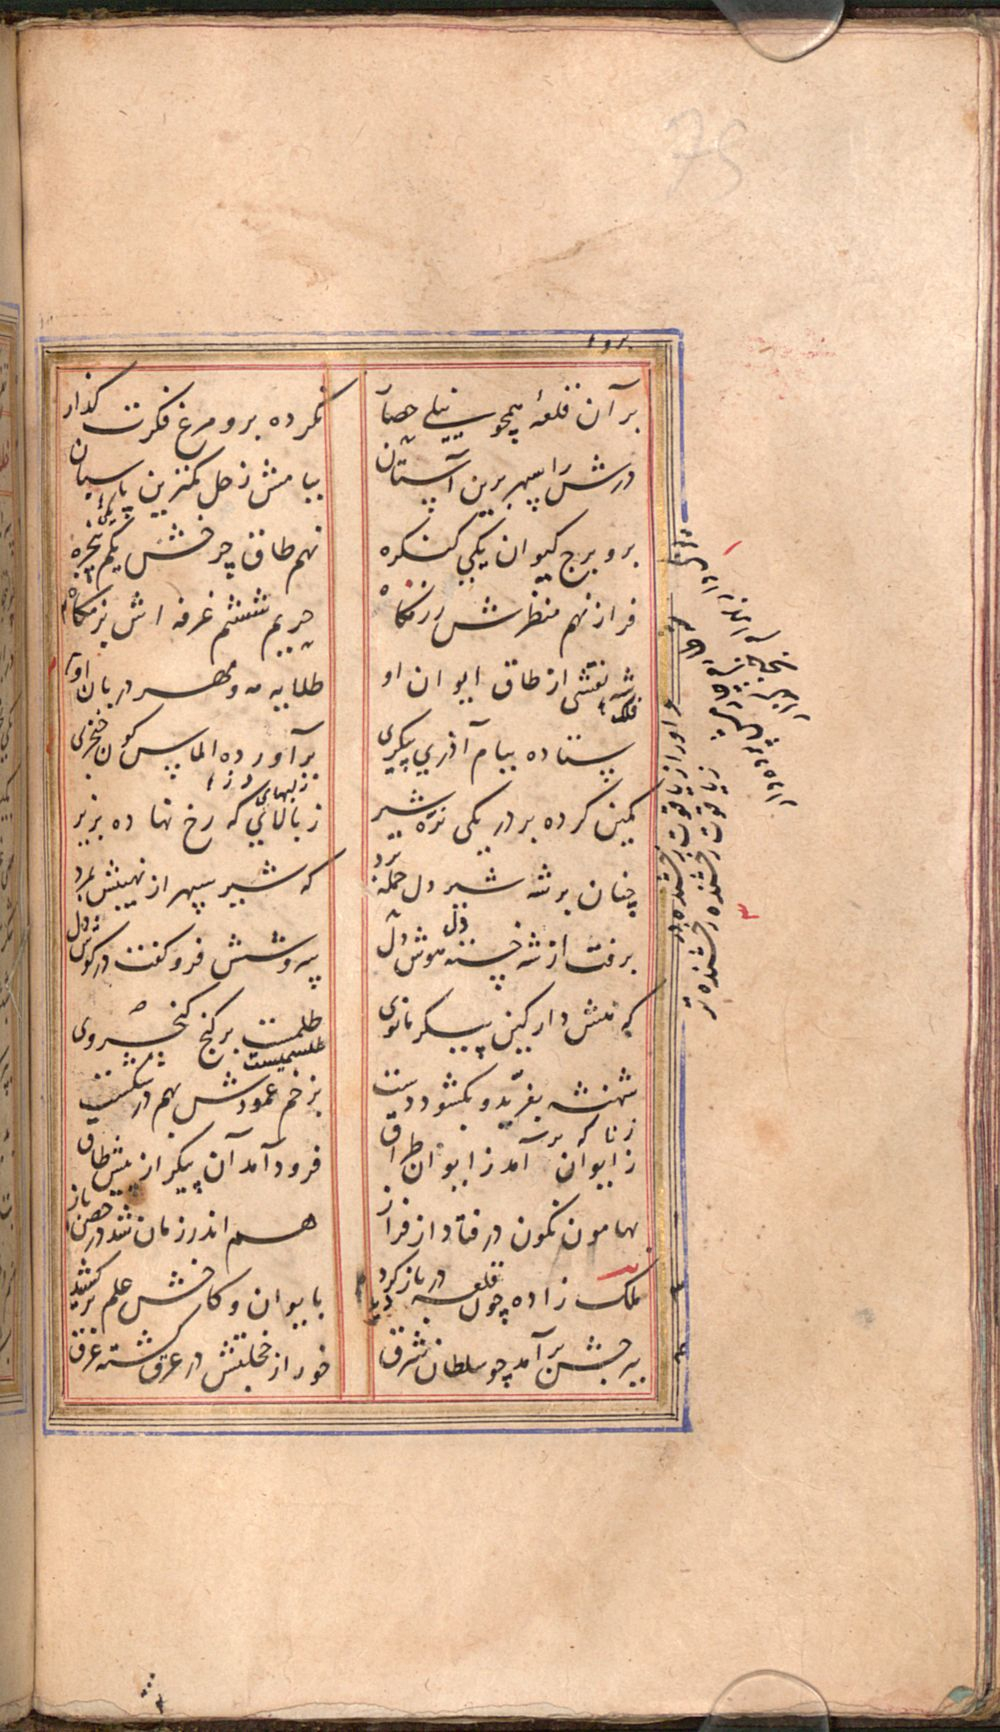 75
بر آن قلعهٔ همچو نیلی حصار
نکرده برو مرغ فکرت گذار
درش را سپهر برین آستان
ببامش زحل کمترین پاسبان
برو برج کیوان یکی کنکره
نهم طاق چرخش یکم پنجره
فراز نهم منظرش رزمکاه
حریم ششم غرفه اش بزمکاه
فلک نقشی از طاق ایوان او
طلایه مه و مهر دربان او
ستاده ببام آذری پیکری
برآورده الماس کون خنجری
کمین کرده بر در یکی نره شیر
زبالای که رخ نهاده بزیر
چنان بر شه شیردل حمله برد
که شیر سپهر از نهیبش بمرد
برفت از شه خسته دل هوش دل
سروشش فرو کفت در کوش دل
که مش دار کین پیکر مانوی
طلسمست بر کنج کیخسروی
طلسمیست
شهنشه بغرید و بکشود دست
بزخم عمودش بهم درشکست
زناکه برآمد ز ایوان طراق
ز ایوان
فرود آمد آن پیکر از پیش طاق
بهامون نکون در فتاد از فراز
هم اندر زمان شد در حصن باز
ملک زاده چون قلعه در باز کرد
بایوان و کاخش علم برکشید
بیرجش برآمد چو سلطان شرق
خور از خجلتش در عرق کشته غرق
ز یاقوت رخشنده رخشنده تر